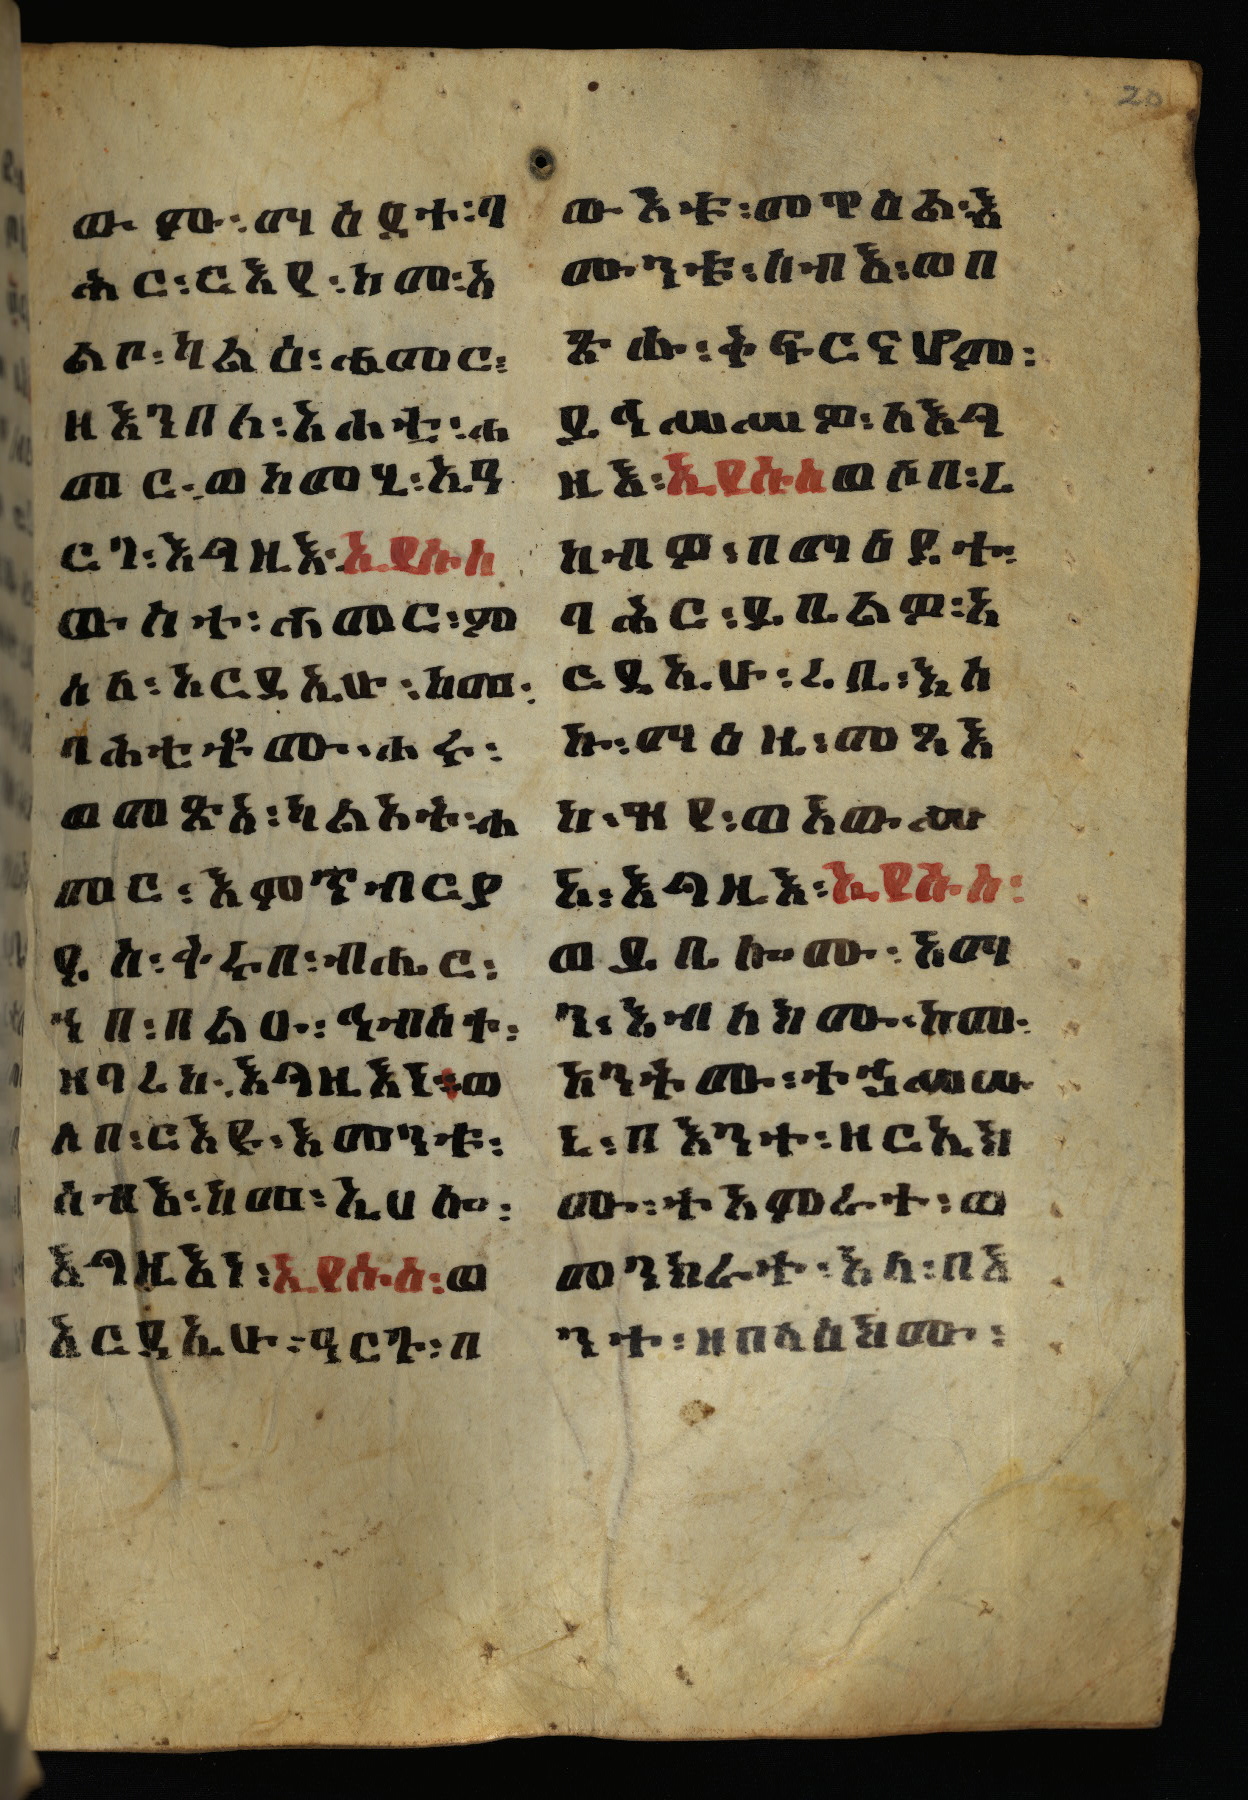 ውምው፡ማዕዶተ፡ባ
ሕር፡ርእየ፡ከመ፡አ
ልቦ፡ካልዕ፡ሐመር፡
ዘእንበለ፡አሐቲ፡ሐ
መር፡ወከመሂ፡ኢዓ
ርገ፡እግዚእ፡ኢየሱስ
ውስተ፡ሐመር፡ምስ
ለ፡አርዳኢሁ፡ከመ፡
ባሕቲቶሙ፡ሐሩ፡
ወመጽአ፡ካልአት፡ሐ
መር፡እምጥብርያ
ዲስ፡ቅሩበ፡ብሔር፡
ኀበ፡በልዑ፡ኅብስተ፡
ዘባረከ፡እግዚእነ፡ወ
ሶበ፡ርእዩ፡እሙንቱ፡
ሰብእ፡ከመ፡ኢሀሎ፡
እግዚእነ፡ኢየሱስ፡ወ
አርዳኢሁ፡ዓርጉ፡በ
ውእቱ፡መዋስልት፡እ
ሙንቱ፡ሰብእ፡ወበ
ጽሑ፡ቅፍርናሆም፡
ይኅሥሥዎ፡ለእግ
ዚእ፡ኢየሱስ፡ወሶበ፡ረ
ከብዎ፡በማዕዶተ፡
ባሕር፡ይቤልዎ፡አ
ርዳኢሁ፡ረቢ፡እስ
ኩ፡ማዕዜ፡መጻእ
ከ፡ዝየ፡ወአውሥ
አ፡እግዚእ፡ኢየሱስ፡
ወይቤሎሙ፡አማ
ን፡እብለክሙ፡ከመ፡
አንትሙ፡ተኃሥሡ
ኒ፡በእንተ፡ዘርኢክ
ሙ፡ተአምራተ፡ወ
መንክራተ፡አላ፡በእ
ንተ፡ዘበላዕክሙ፡